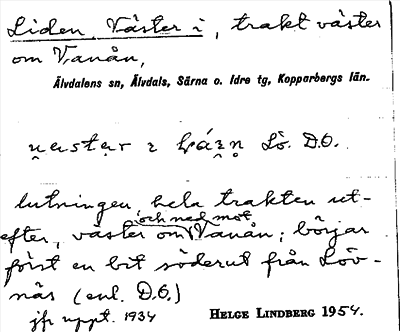 Liden, Väster i, trakt väster
om Vanån,
Älvdalens sn, Älvdals, Särna o. Idre tg, Kopparbergs län.
Lö. D.O.
lutningen, hela trakten ut-
efter, väster om och ned mot Vanån; börjar
först en bit söderut från Löv-
näs (enl. D.O.)
jfr uppt. 1934
HELGE LINDBERG 1954.